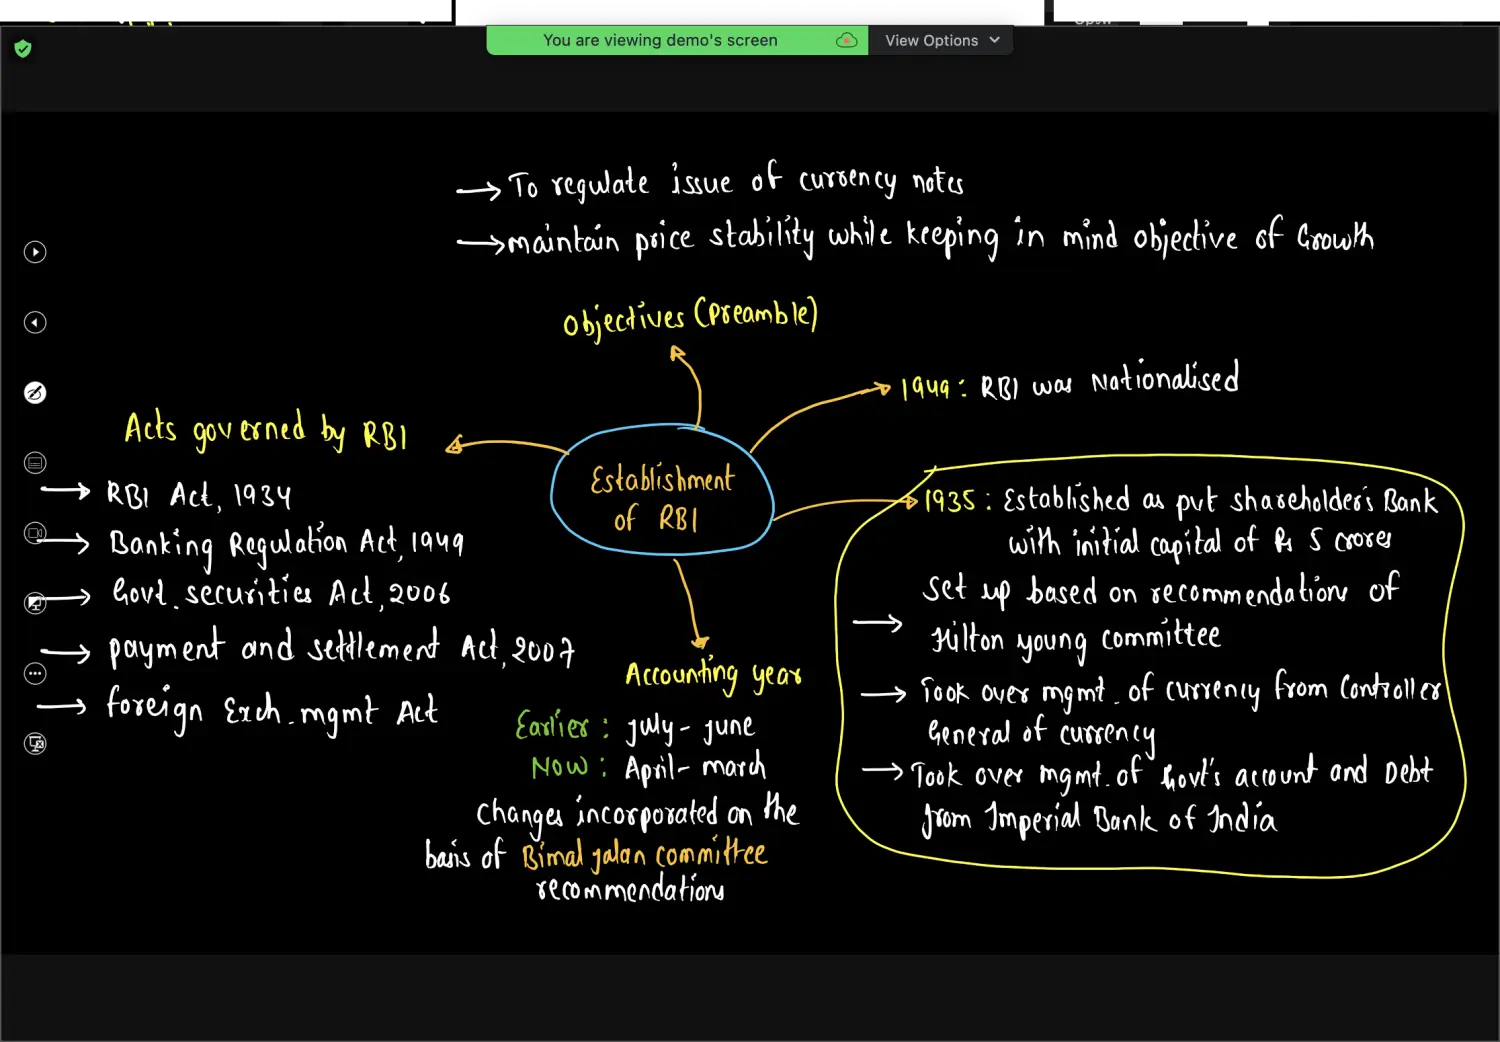 You are viewing demo's screen
View Options
→ To regulate issue of currency notes
→ maintain price stability while keeping in mind objective of Growth
Objectives (Preamble)
1949: RBI was Nationalised
Acts governed by RBI
→ RBI Act, 1934
→ Banking Regulation Act, 1949
→ Govt. securities Act, 2006
→ payment and settlement Act, 2007
→ foreign Exch. mgmt Act
Establishment
of RBI
1935: Established as pvt shareholder's Bank
with initial capital of Rs 5 crores
→ Set up based on recommendations of
Hilton young committee
→ Took over mgmt. of currency from Controller
General of currency
→ Took over mgmt. of Govt's account and Debt
from Imperial Bank of India
Accounting year
Earlier: July - June
Now: April - march
Changes incorporated on the
basis of Bimal Jalan committee
recommendations